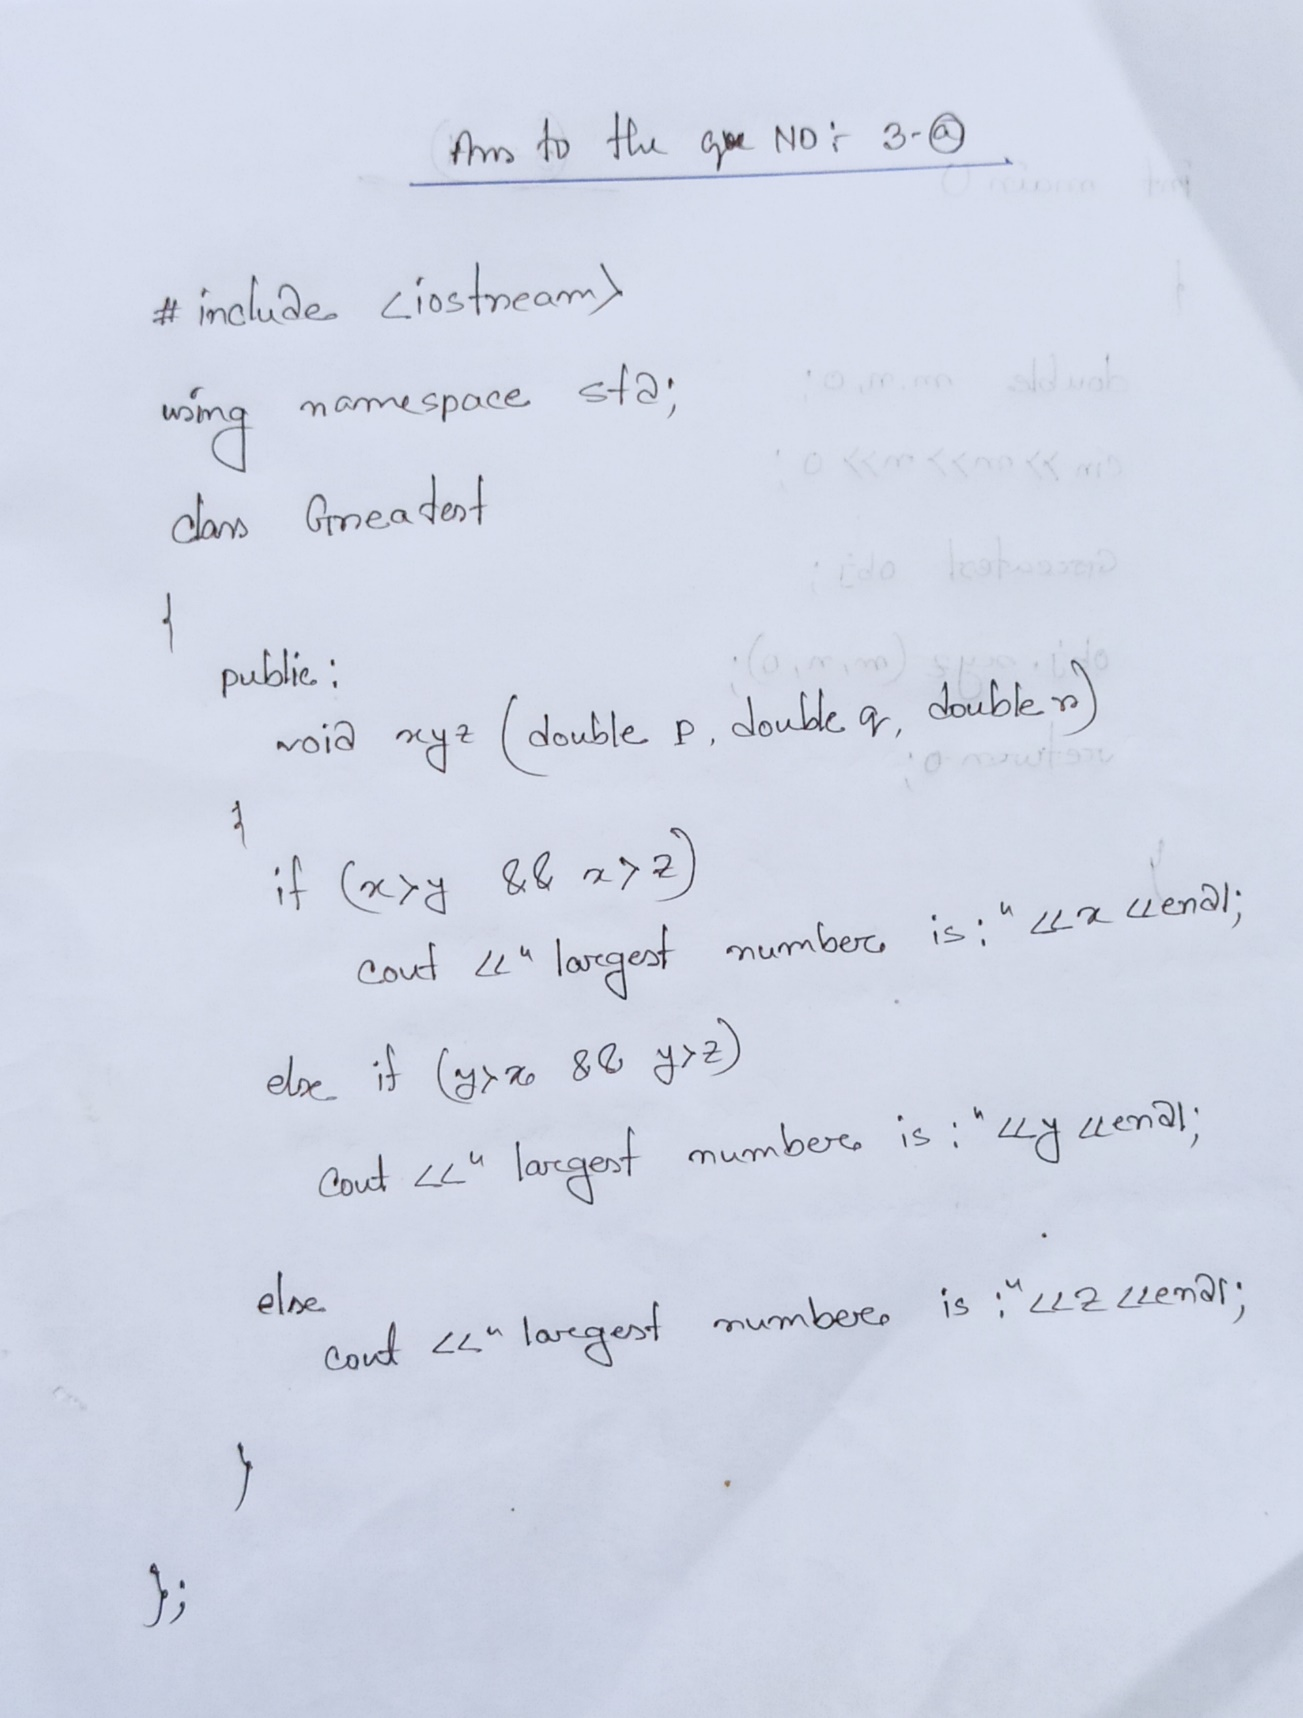 Ans to the que NO: 3-ⓐ
# include <iostream>
using namespace std;
class Greatest
{
public:
void xyz (double p, double q, double r)
{
if (x>y && x>z)
cout <<" largest number is:" <<x <<endl;
else if (y>x && y>z)
cout <<" largest number is:" <<y <<endl;
else
cout <<" largest number is:" <<z <<endl;
}
};